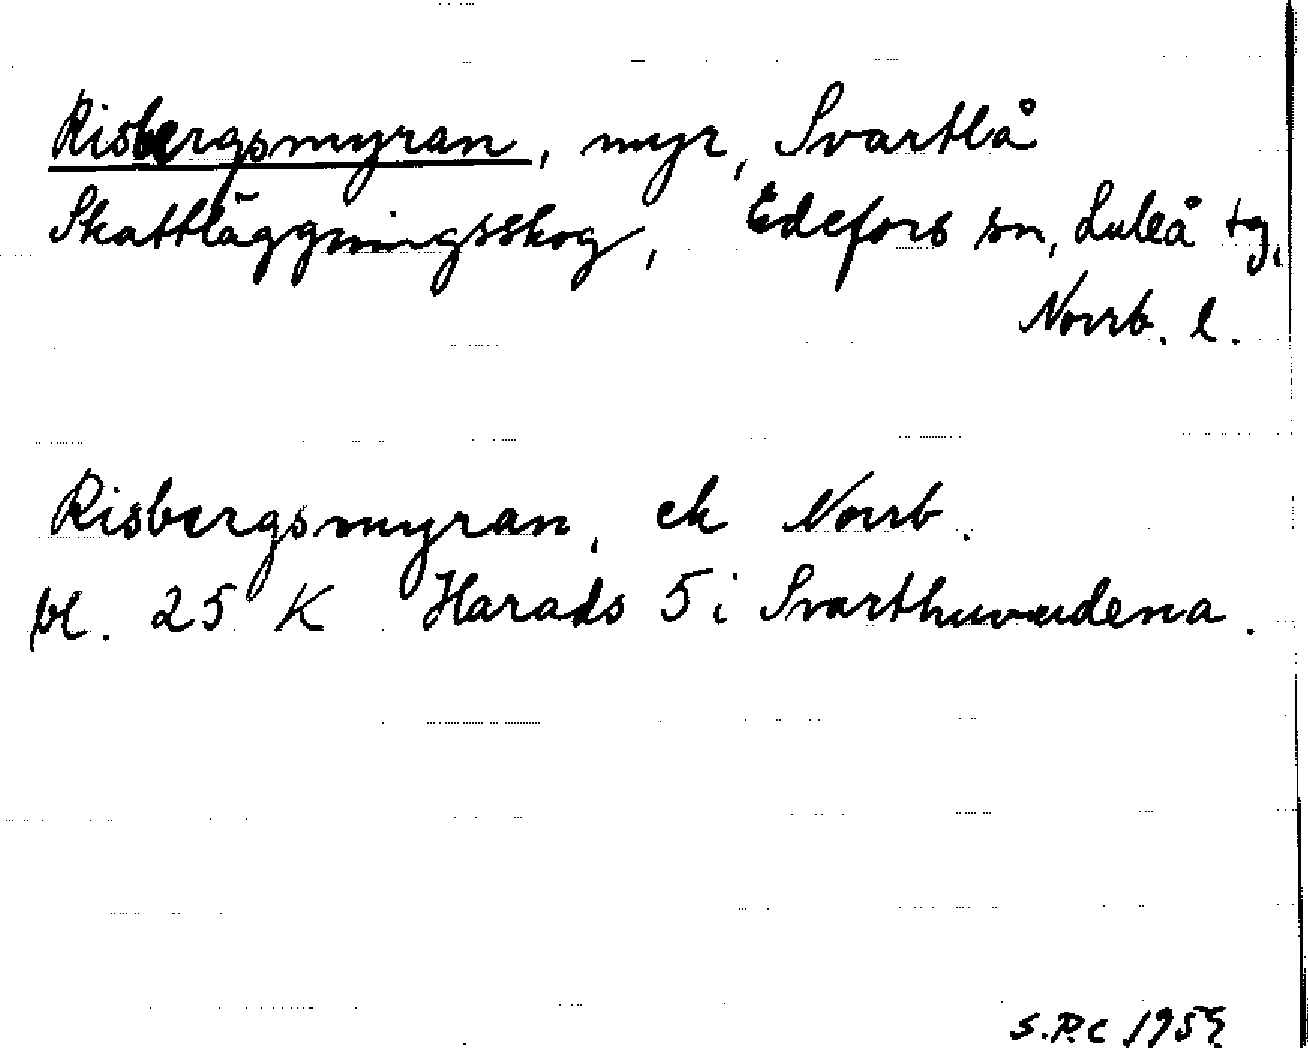 Risbergsmyran, myr, Svartlå
Skattläggningsskog, Edefors sn, Luleå tg,
Norrb. l.
Risbergsmyran, ek Norrb.
bl. 25 K Harads 5 i Svarthuvudena.
S.R.C 1959